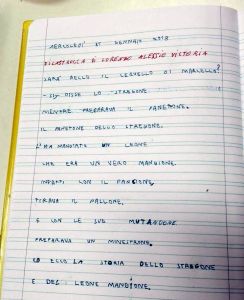 MERCOLEDÌ 31 GENNAIO 2018
FILASTROCCA DI LORENZO ALESSIO VICTORIA
SARÀ BELLO IL CERVELLO DI MARCELLO?
- SÌ - DISSE LO STREGONE
MENTRE PREPARAVA IL PANETTONE.
IL PANETTONE DELLO STREGONE.
L'HA MANGIATO UN LEONE
CHE ERA UN VERO MANGIONE.
INFATTI CON IL PANCIONE.
TIRAVA IL PALLONE.
E CON LE SUE MUTANDONE
PREPARAVA UN MINESTRONE.
ED ECCO LA STORIA DELLO STREGONE
E DEL LEONE MANGIONE.